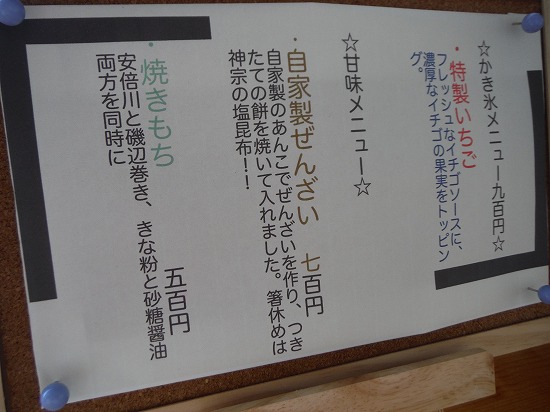 ☆かき氷メニュー九百円☆
・特製いちご
フレッシュなイチゴソースに、
濃厚なイチゴの果実をトッピン
グ。
☆甘味メニュー☆
・自家製ぜんざい　七百円
自家製のあんこでぜんざいを作り、つき
たての餅を焼いて入れました。箸休めは
神宗の塩昆布！！
・焼きもち　五百円
安倍川と磯辺巻き、きな粉と砂糖醤油
両方を同時に